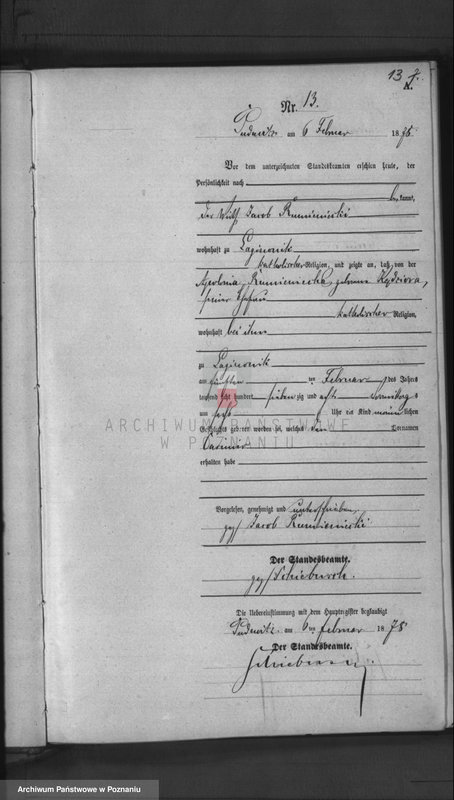 13
A.
Nr. 13.
Pudewitz am 6 Februar 1875
Vor dem unterzeichneten Standesbeamten erschien heute, der
Persönlichkeit nach
be kannt,
der Wirth Jacob
wohnhaft zu Lagiewnik
katholischer Religion, und zeigte an, daß von der
Apolonia geborene
seiner Ehefrau
katholischer Religion,
wohnhaft bei ihm
zu Lagiewnik
am fünften ten Februar des Jahres
tausend acht hundert sieben zig und fünf
um Uhr ein Kind männlichen
Geschlechts geboren worden sei, welches den Vornamen
Casimir
erhalten habe
Vorgelesen, genehmigt und unterschrieben
gez/ Jacob
Der Standesbeamte.
gez/
Die Uebereinstimmung mit dem Hauptregister beglaubigt
Pudewitz am 6 ten Februar 1875
Der Standesbeamte.
ARCHIWUM PAŃSTWOWE
W POZNANIU
Archiwum Państwowe w Poznaniu